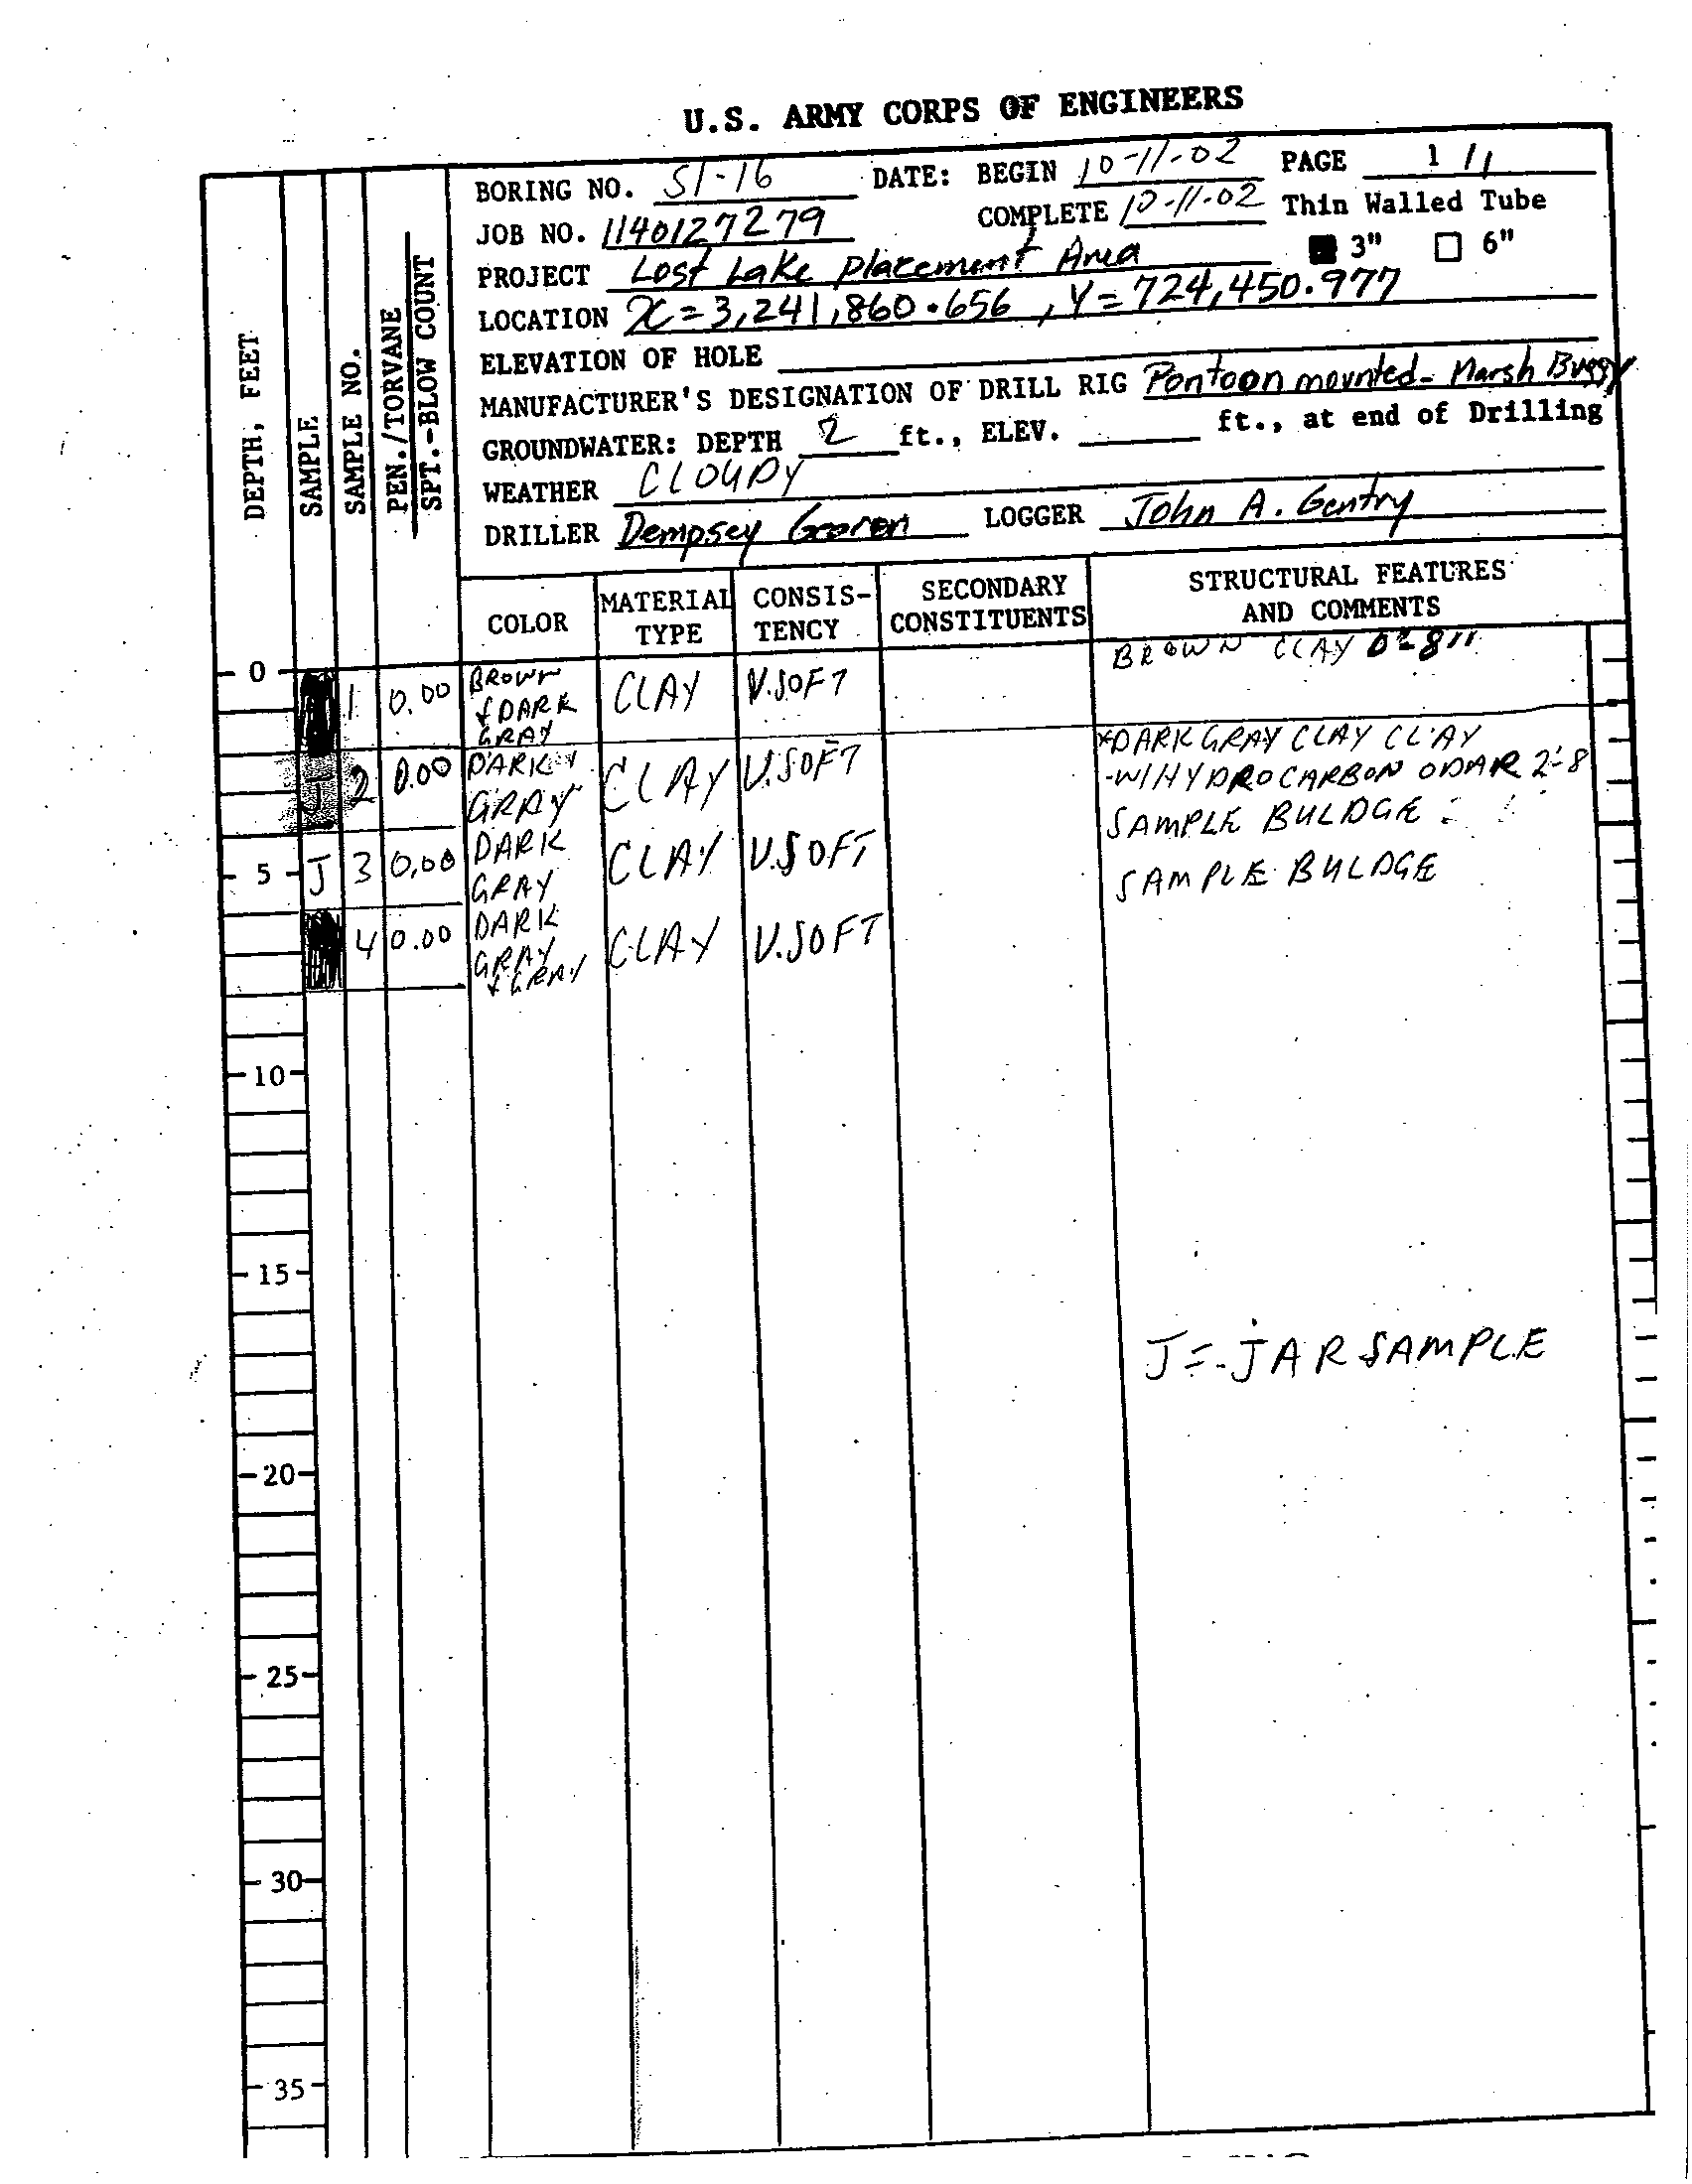 U.S. ARMY CORPS OF ENGINEERS
BORING NO. SI-16 DATE: BEGIN 10-11-02 PAGE 1 / 1
JOB NO. 1140127279 COMPLETE 10-11-02 Thin Walled Tube
PROJECT Lost Lake Placement Area 3" 6"
LOCATION X=3,241,860.656, Y=724,450.977
ELEVATION OF HOLE
MANUFACTURER'S DESIGNATION OF DRILL RIG Pontoon mounted- Marsh Buggy
GROUNDWATER: DEPTH 2 ft., ELEV. ft., at end of Drilling
WEATHER CLOUDY
DRILLER Dempsey LOGGER John A. Gentry
DEPTH, FEET
SAMPLE
SAMPLE NO.
PEN./TORVANE
SPT.-BLOW COUNT
COLOR MATERIAL TYPE CONSIS-TENCY SECONDARY CONSTITUENTS STRUCTURAL FEATURES AND COMMENTS
BROWN CLAY 0-8"
0 1 0.00 BROWN & DARK GRAY CLAY V.SOFT
*DARK GRAY CLAY CLAY
J 2 0.00 DARK GRAY CLAY V.SOFT -W/HYDROCARBON ODAR 2'-8
SAMPLE BULDGE
5 J 3 0.00 DARK GRAY CLAY V.SOFT SAMPLE BULDGE
4 0.00 DARK GRAY & GRAY CLAY V.SOFT
10
15
J = JAR SAMPLE
20
25
30
35